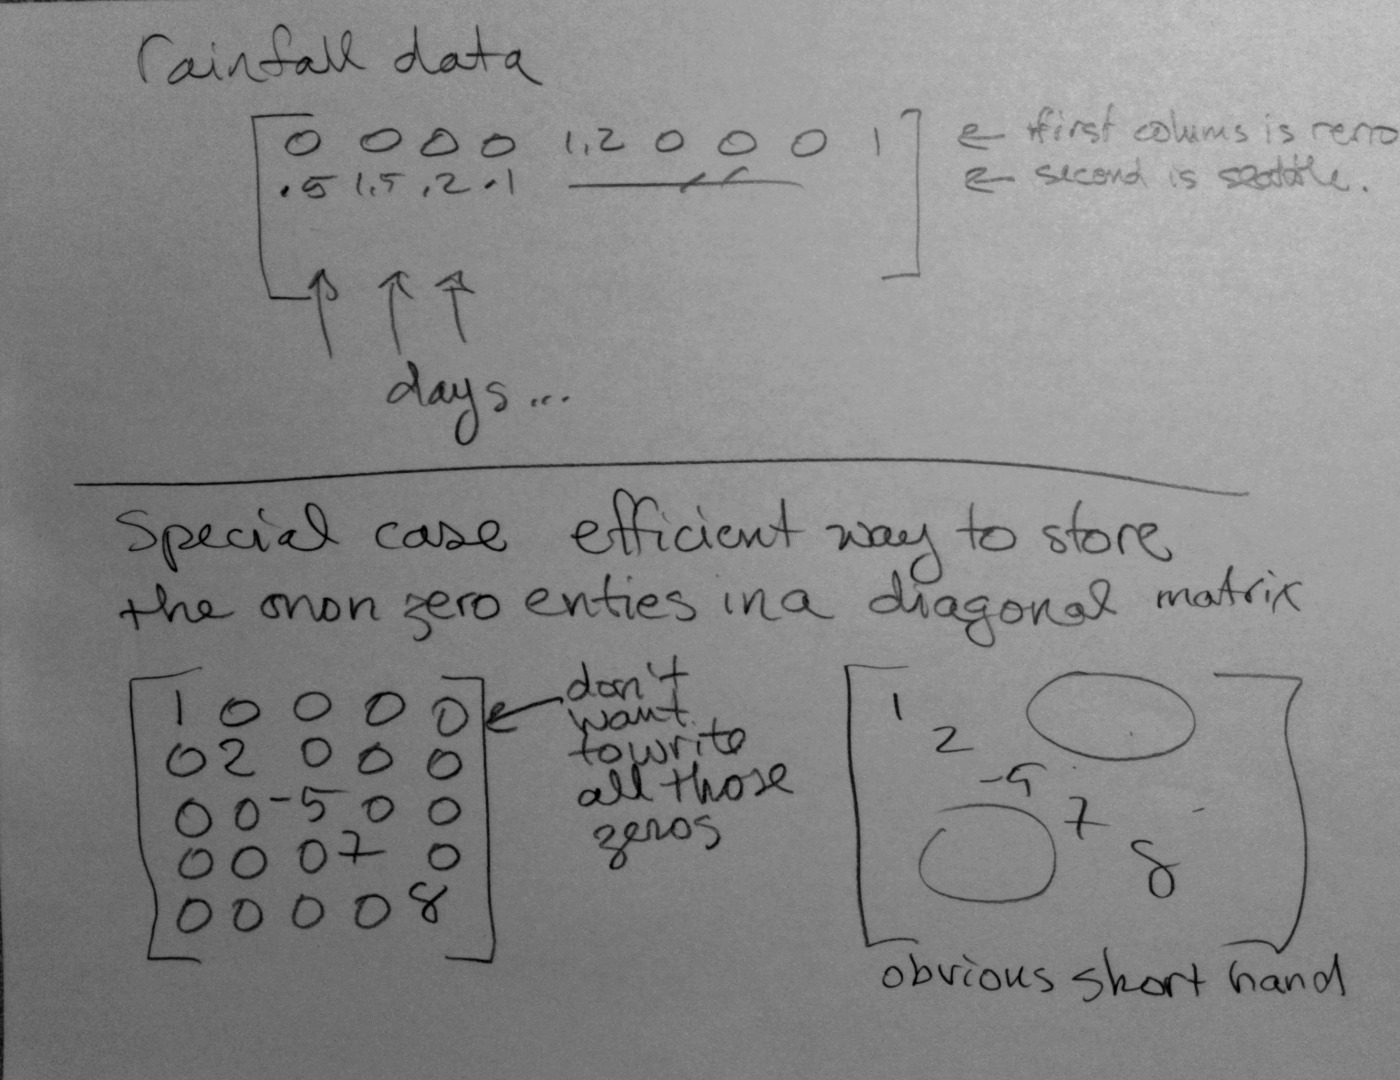 rainfall data
0 0 0 0 1.2 0 0 0 1 ← first colums is reno
.5 1.5 .2 .1 ← second is seattle.
days...
Special case efficient way to store
the non zero enties in a diagonal matrix
1 0 0 0 0
0 2 0 0 0
0 0 -5 0 0
0 0 0 7 0
0 0 0 0 8
don't
want
to write
all those
zeros
1
2
-5
7
8
obvious short hand